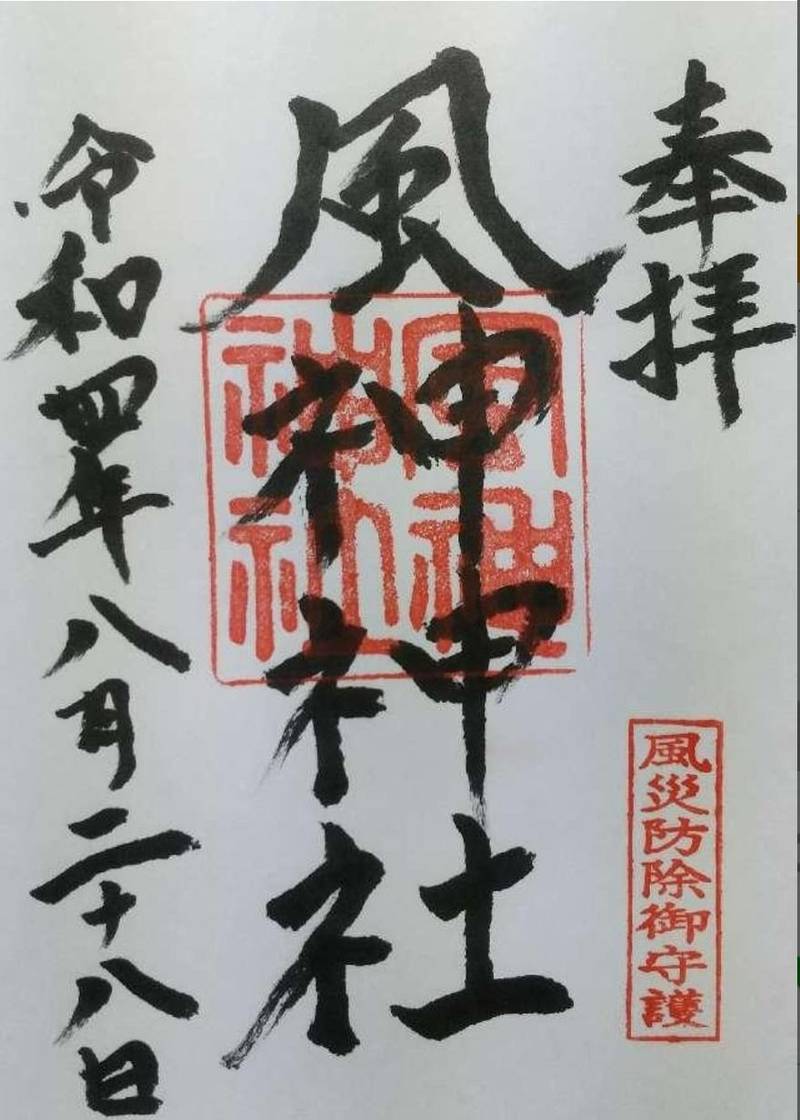 奉拝
風災防除御守護
風神神社
風神神社
令和四年八月二十八日